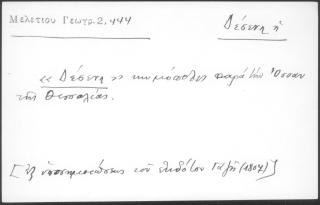 Μελετίου Γεωγρ. 2, 444
Δέσενη ἡ
« Δέσενη » κωμόπολις παρὰ τὴν Ὄσσαν
τῆς Θεσσαλίας.
[ἐξ ὑποσημειώσεως τοῦ ἐκδότου Γαζῆ (1807)]